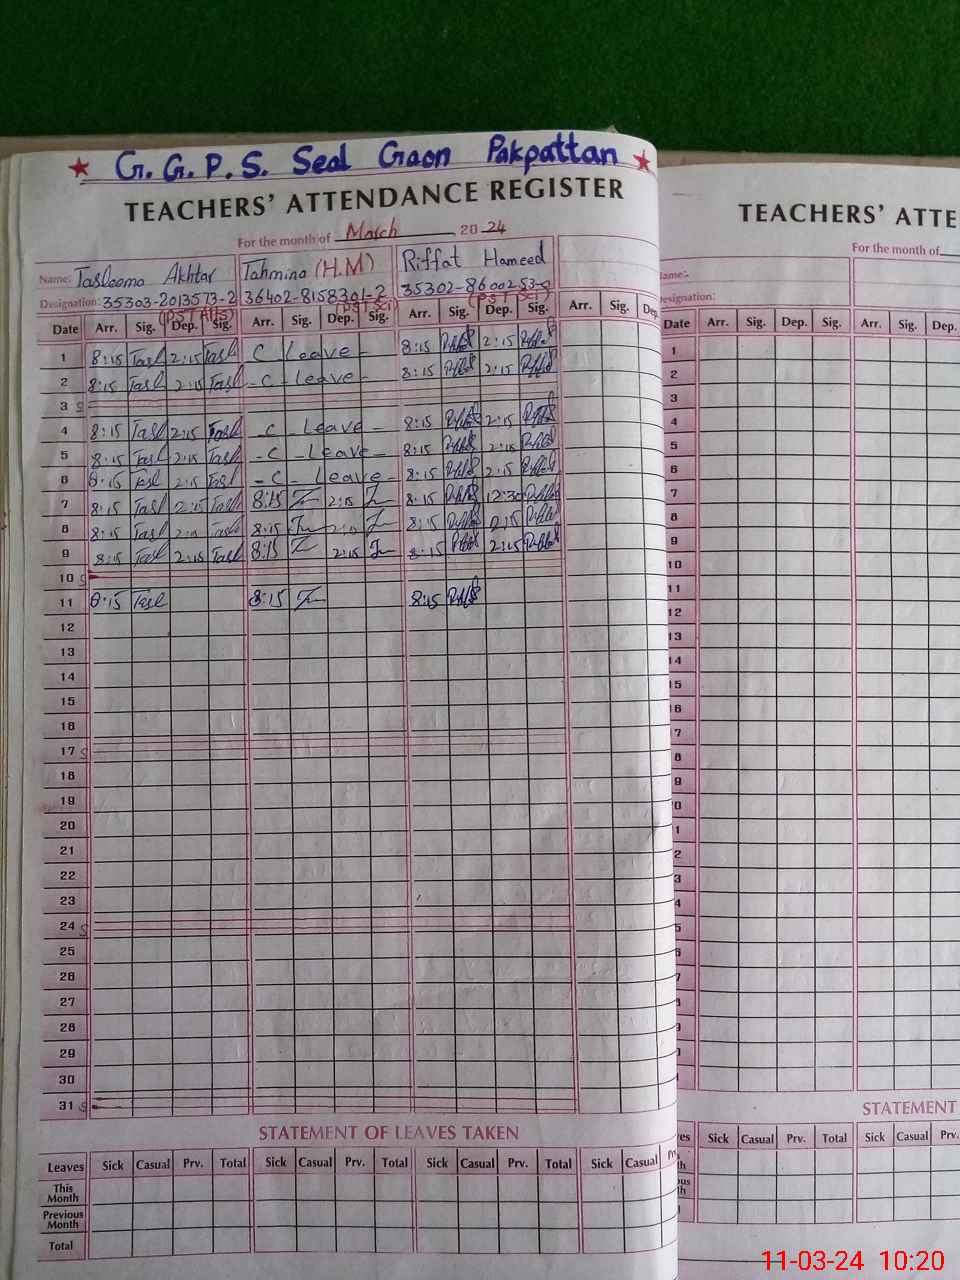 ★ G. G. P. S. Seal Gaon Pakpattan ★
TEACHERS' ATTENDANCE REGISTER
For the month of March 2024
Name: Tasleema Akhtar Tahmina (H.M) Riffat Hameed
Designation: 35303-2013573-2 36402-8158301-2 35302-8600253-
(PST Arts) (PST Sci) (PST Sci)
Date Arr. Sig. Dep. Sig. Arr. Sig. Dep. Sig. Arr. Sig. Dep. Sig. Arr. Sig. Dep.
1 8:15 Tasl 2:15 Tasl C Leave - 8:15 2:15
2 8:15 Tasl 2:15 Tasl - C - Leave - 8:15 2:15
3 S
4 8:15 Tasl 2:15 Tasl - C - Leave - 8:15 2:15
5 8:15 Tasl 2:15 Tasl - C - Leave - 8:15 2:15
6 8:15 Tasl 2:15 Tasl - C - Leave - 8:15 2:15
7 8:15 Tasl 2:15 Tasl 8:15 2:15 8:15 12:30
8 8:15 Tasl 2:15 Tasl 8:15 2:15 8:15 2:15
9 8:15 Tasl 2:15 Tasl 8:15 2:15 8:15 2:15
10 S
11 8:15 Tasl 8:15 8:15
12
13
14
15
16
17 S
18
19
20
21
22
23
24 S
25
26
27
28
29
30
31 S
STATEMENT OF LEAVES TAKEN
Leaves Sick Casual Prv. Total Sick Casual Prv. Total Sick Casual Prv. Total Sick Casual Prv.
This Month
Previous Month
Total
TEACHERS' ATTE
For the month of
ame:-
esignation:
Date Arr. Sig. Dep. Sig. Arr. Sig. Dep.
1
2
3
4
5
6
7
8
9
10
11
12
13
14
15
16
7
8
9
0
1
2
3
4
5
6
7
8
9
STATEMENT
ves Sick Casual Prv. Total Sick Casual Prv.
th
ous
th
11-03-24 10:20